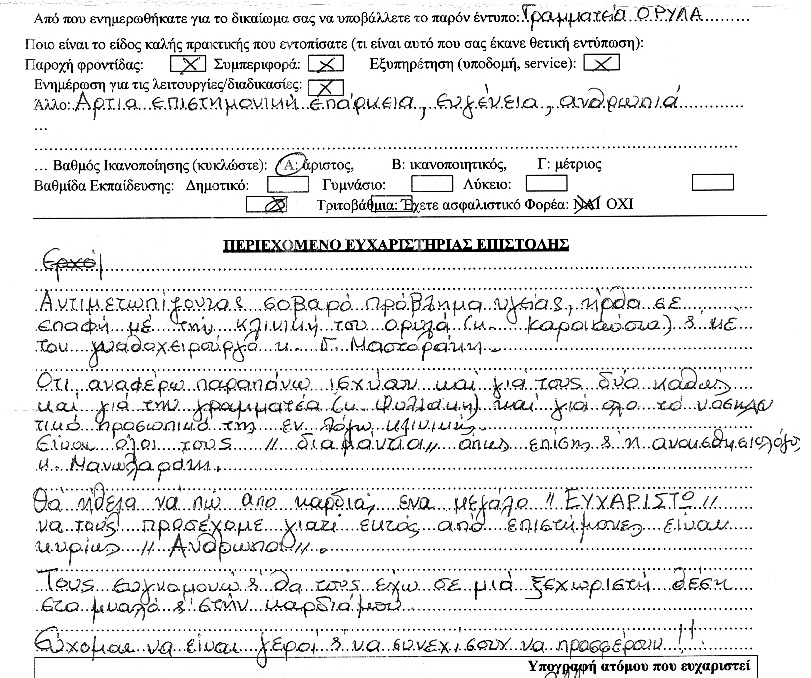 Από που ενημερωθήκατε για το δικαίωμα σας να υποβάλλετε το παρόν έντυπο: Γραμματεία ΟΡΥΛΑ
Ποιο είναι το είδος καλής πρακτικής που εντοπίσατε (τι είναι αυτό που σας έκανε θετική εντύπωση):
Παροχή φροντίδας: X Συμπεριφορά: X Εξυπηρέτηση (υποδομή, service): X
Ενημέρωση για τις λειτουργίες/διαδικασίες: X
Άλλο: Άρτια επιστημονική επάρκεια, ευγένεια, ανθρωπιά
...
... Βαθμός Ικανοποίησης (κυκλώστε): Α: άριστος, Β: ικανοποιητικός, Γ: μέτριος
Βαθμίδα Εκπαίδευσης: Δημοτικό: Γυμνάσιο: Λύκειο:
Τριτοβάθμια: Έχετε ασφαλιστικό Φορέα: ΝΑΙ ΟΧΙ
ΠΕΡΙΕΧΟΜΕΝΟ ΕΥΧΑΡΙΣΤΗΡΙΑΣ ΕΠΙΣΤΟΛΗΣ
Αντιμετωπίζοντας σοβαρό πρόβλημα υγείας, ήρθα σε
επαφή με την κλινική του ορυλά (κ. ) & με
τον γναθοχειρουργό κ. Γ. Μαστοράκη.
Ότι αναφέρω παραπάνω ισχύουν και για τους δύο καθώς
και για την γραμματέα (κ. Φυλλάκη) και για όλο το νοσηλευ
τικό προσωπικό της εν λόγω κλινικής.
Είναι όλοι τους "διαμάντια" όπως επίσης & η αναισθησιολόγος
κ. Μανωλαράκη.
Θα ήθελα να πω από καρδιάς ένα μεγάλο "ΕΥΧΑΡΙΣΤΩ"
να τους προσέχομε γιατί εκτός από επιστήμονες είναι
κυρίως "Άνθρωποι".
Τους ευγνομονώ & θα τους έχω σε μιά ξεχωριστή θέση
στο μυαλό & στην καρδιά μου.
Εύχομαι να είναι γεροί & να συνεχίσουν να προσφέρουν!!
Υπογραφή ατόμου που ευχαριστεί